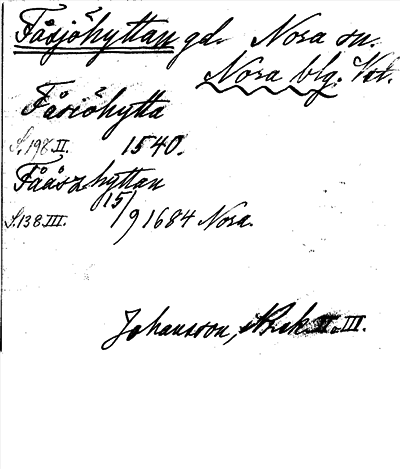 Fåsjöhyttan gd. Nora sn.
Nora blg. Vst.
Fåsiöhytta
S. 198 II. 1540.
Fååszhyttan
S. 138 III. 15/9 1684 Nora.
Johansson, II o. III.